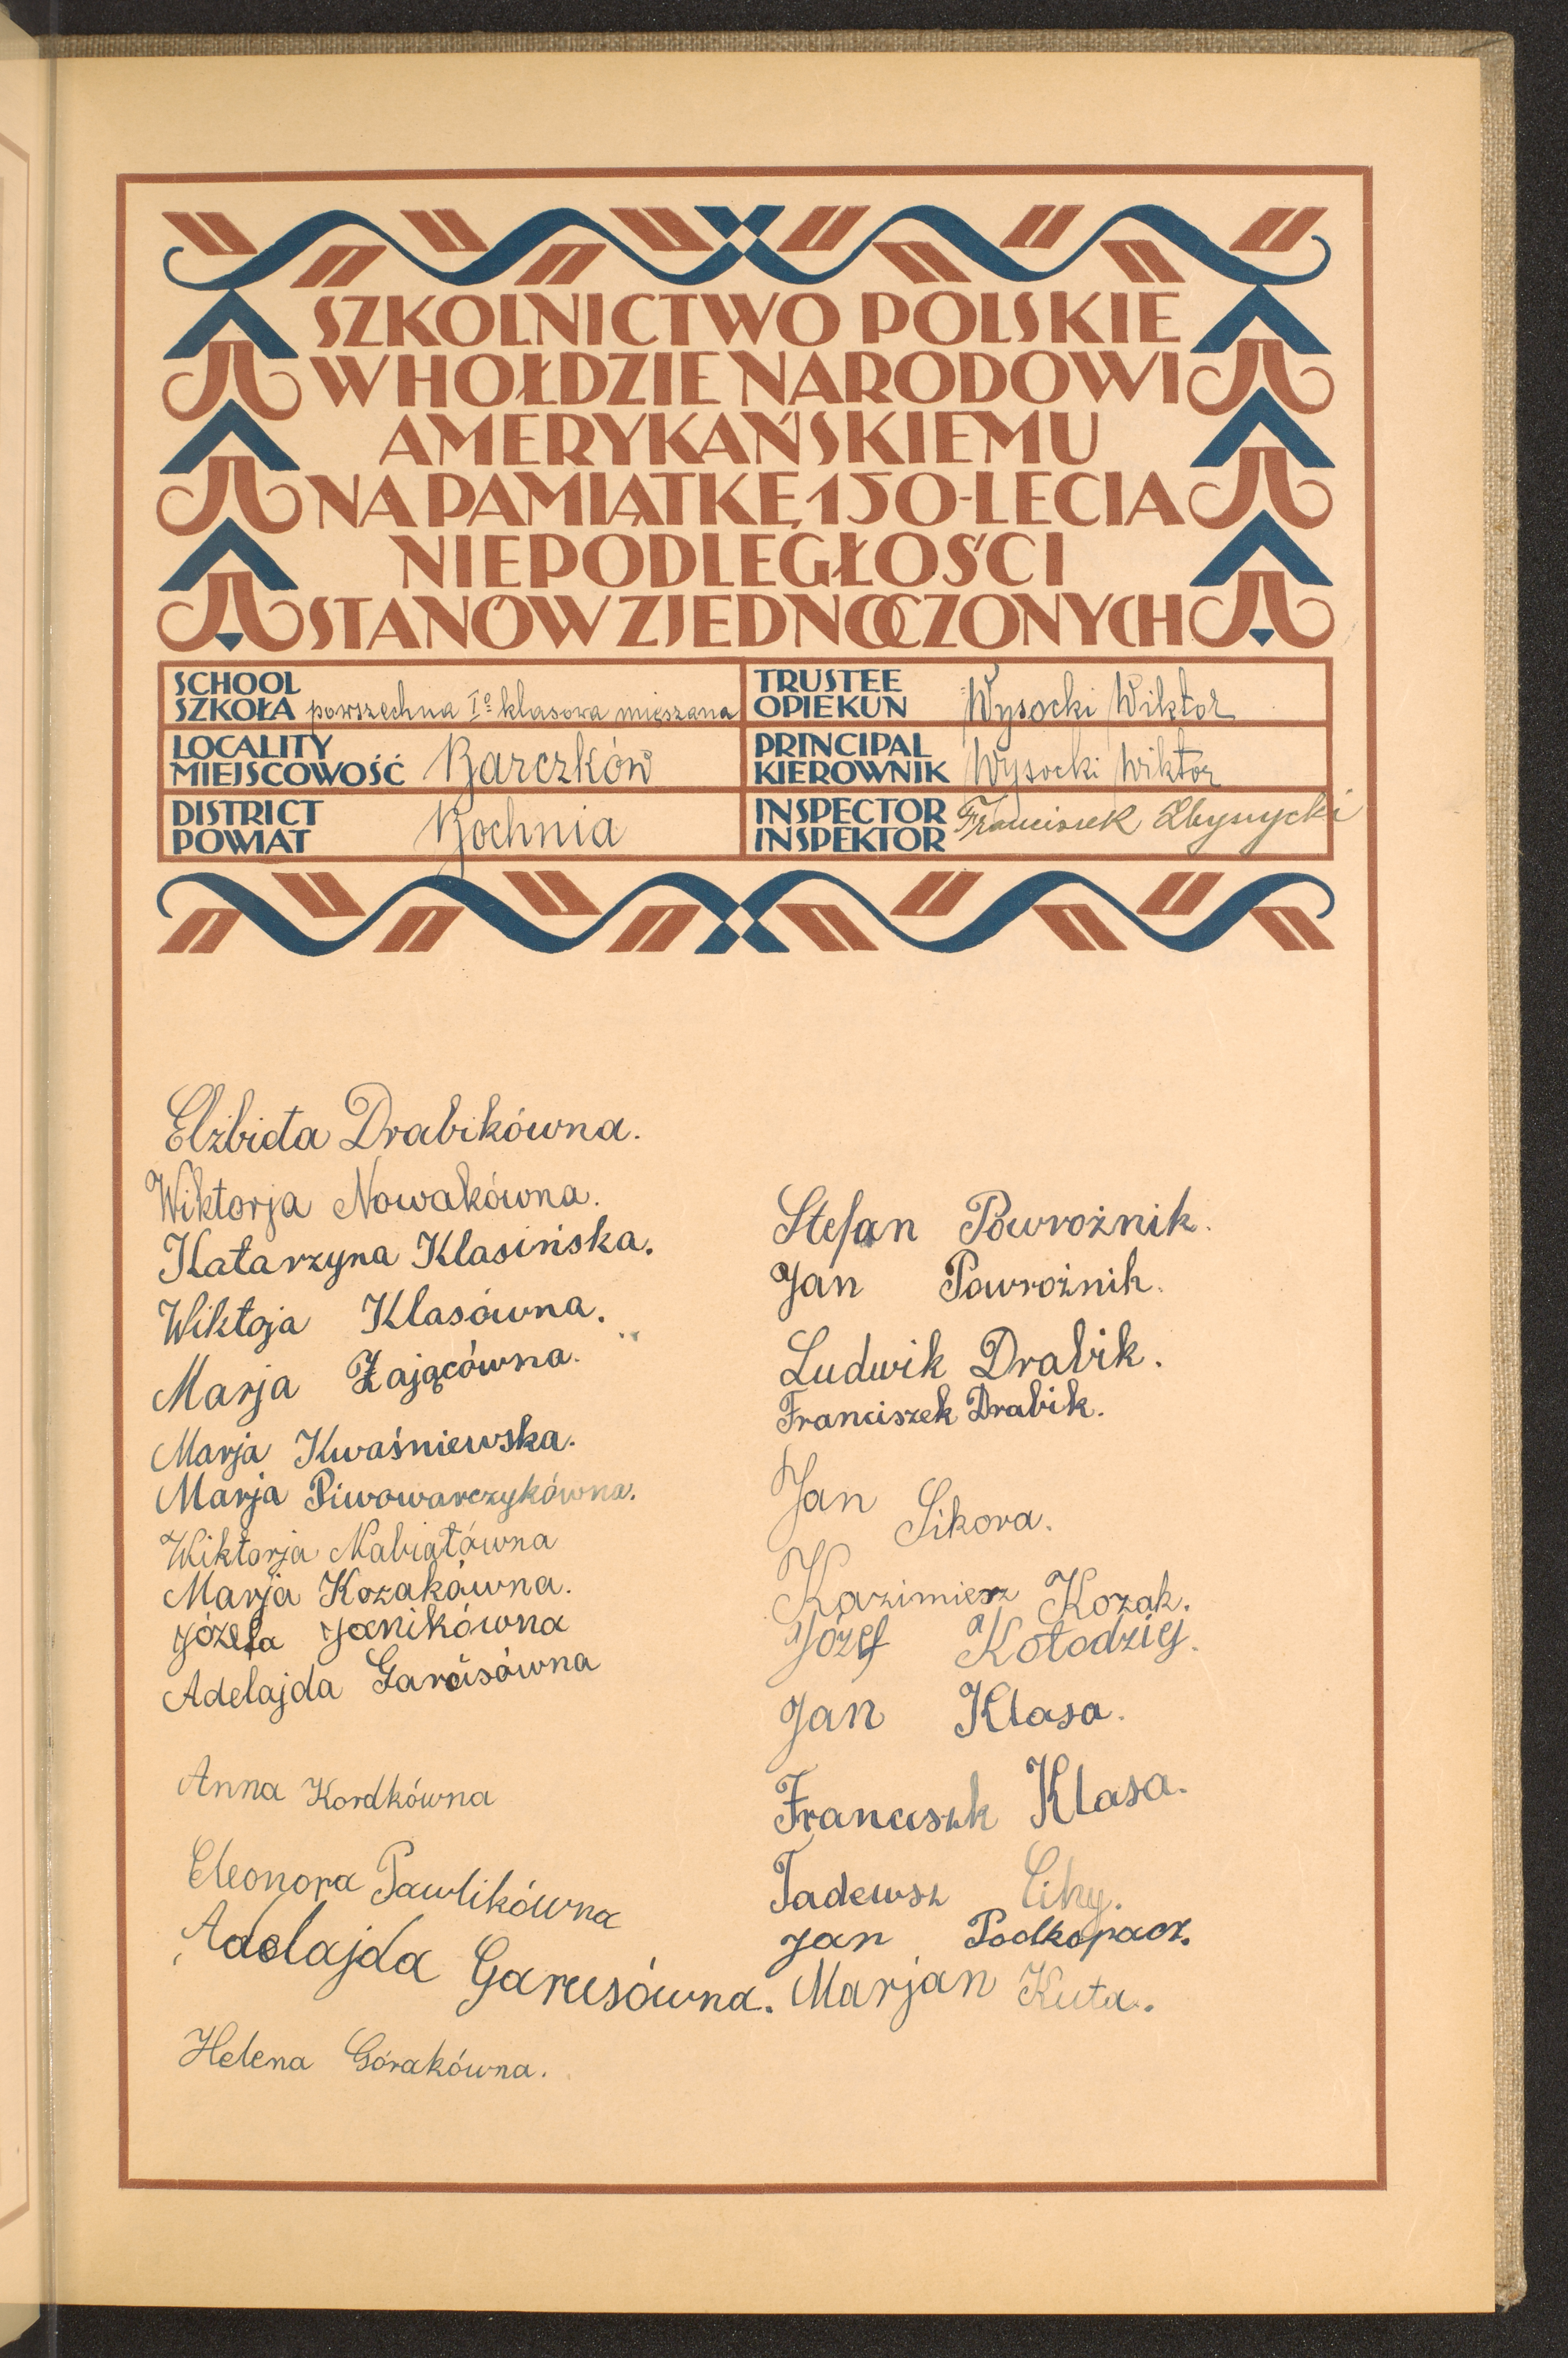 SZKOLNICTWO POLSKIE
W HOŁDZIE NARODOWI
AMERYKAŃSKIEMU
NA PAMIĄTKĘ 150-LECIA
NIEPODLEGŁOŚCI
STANÓW ZJEDNOCZONYCH
SCHOOL
SZKOŁA powszechna Iº klasowa mięszana
TRUSTEE
OPIEKUN Wysocki Wiktor
LOCALITY
MIEJSCOWOŚĆ Barczków
PRINCIPAL
KIEROWNIK Wysocki Wiktor
DISTRICT
POWIAT Bochnia
INSPECTOR
INSPEKTOR Franciszek
Elżbieta Drabikówna.
Wiktorja Nowakówna.
Katarzyna Klasińska.
Wiktoja Klasówna.
Marja Zającówna.
Marja Kwaśniewska.
Marja Piwowarczykówna.
Wiktorja Nabiałówna
Marja Kozakówna.
Józefa Janikówna
Adelajda Garusówna
Anna Kordkówna
Eleonora Pawlikówna
Adelajda Garusówna.
Helena Górakówna.
Stefan Powroźnik.
Jan Powroźnik.
Ludwik Drabik.
Franciszek Drabik.
Jan Sikora.
Kazimierz Kozak.
Józef Kołodziej.
Jan Klasa.
Franciszk Klasa.
Tadeusz
Jan Podkopacz.
Marjan Kuta.